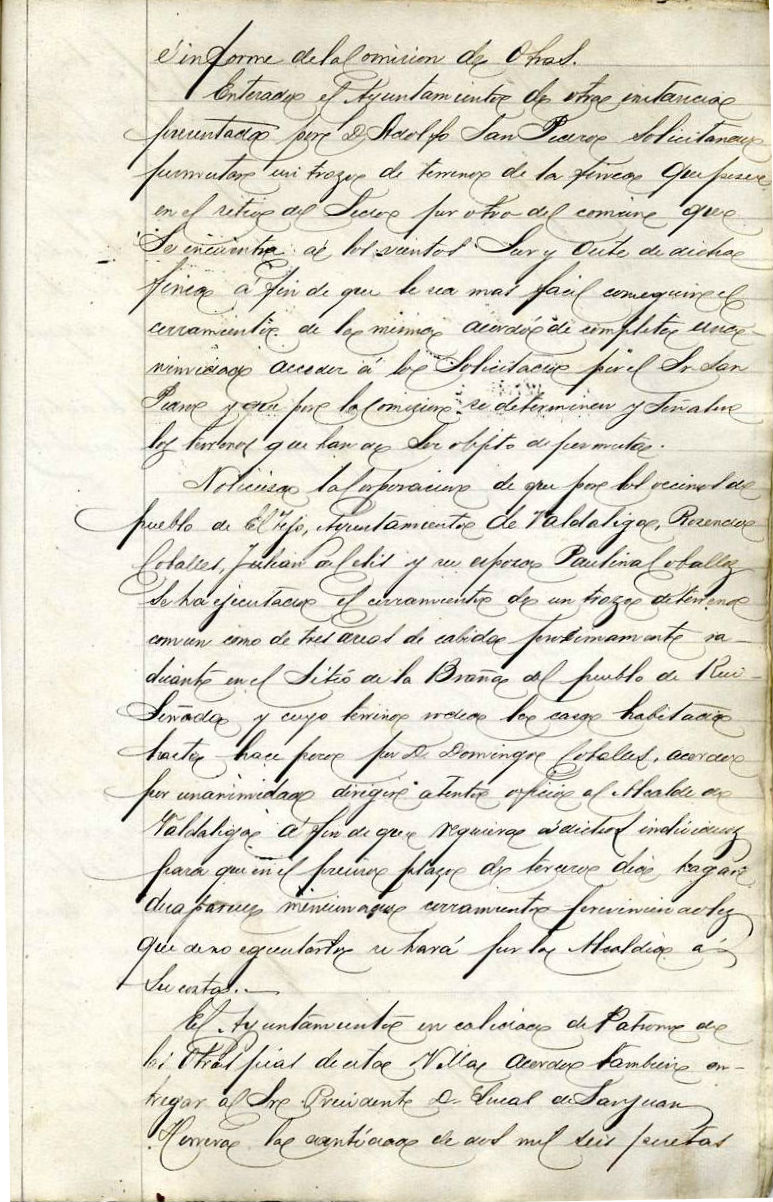 é informe de la Comision de Obras.
Enterado el Ayuntamiento de otra instancia
presentada por D. Adolfo San Pedro solicitando
permutar un trozo de terreno de la finca que posee
en el sitio del Sedo por otro del comun que
se encuentra á los vientos Sur y Oeste de dicha
finca á fin de que le sea mas facil conseguir el
cerramiento de la misma acordó de completa una-
nimidad acceder á lo solicitado por el Sr. San
Pedro y que por la Comision se determinen y señalen
los terrenos que han de ser objeto de permuta.
Noticiosa la Corporacion de que por los vecinos del
pueblo de El Tejo, Ayuntamiento de Valdaliga, Rosendo
Coballes, Julian de Celis y su esposa Paulina Coballes
se ha ejecutado el cerramiento de un trozo de terreno
comun como de tres areas de cabida proximamente ra-
dicante en el sitio de la Braña del pueblo de Rui-
señada y cuyo terreno rodea la casa habitada
hasta hace poco por D. Domingo Coballes, acordó
por unanimidad dirigir atento oficio al Alcalde de
Valdaliga á fin de que requiera á dichos individuos
para que en el preciso plazo de tercero dia, hagan
desaparecer mencionado cerramiento previniendoles
que de no ejecutarlo se hará por la Alcaldia á
su costa.
El Ayuntamiento en calidad de Patrono de
las Obras pias de esta Villa acordó tambien en-
tregar al Sr. Presidente D. Lucas de Sanjuan
Herrera la cantidad de dos mil seis pesetas